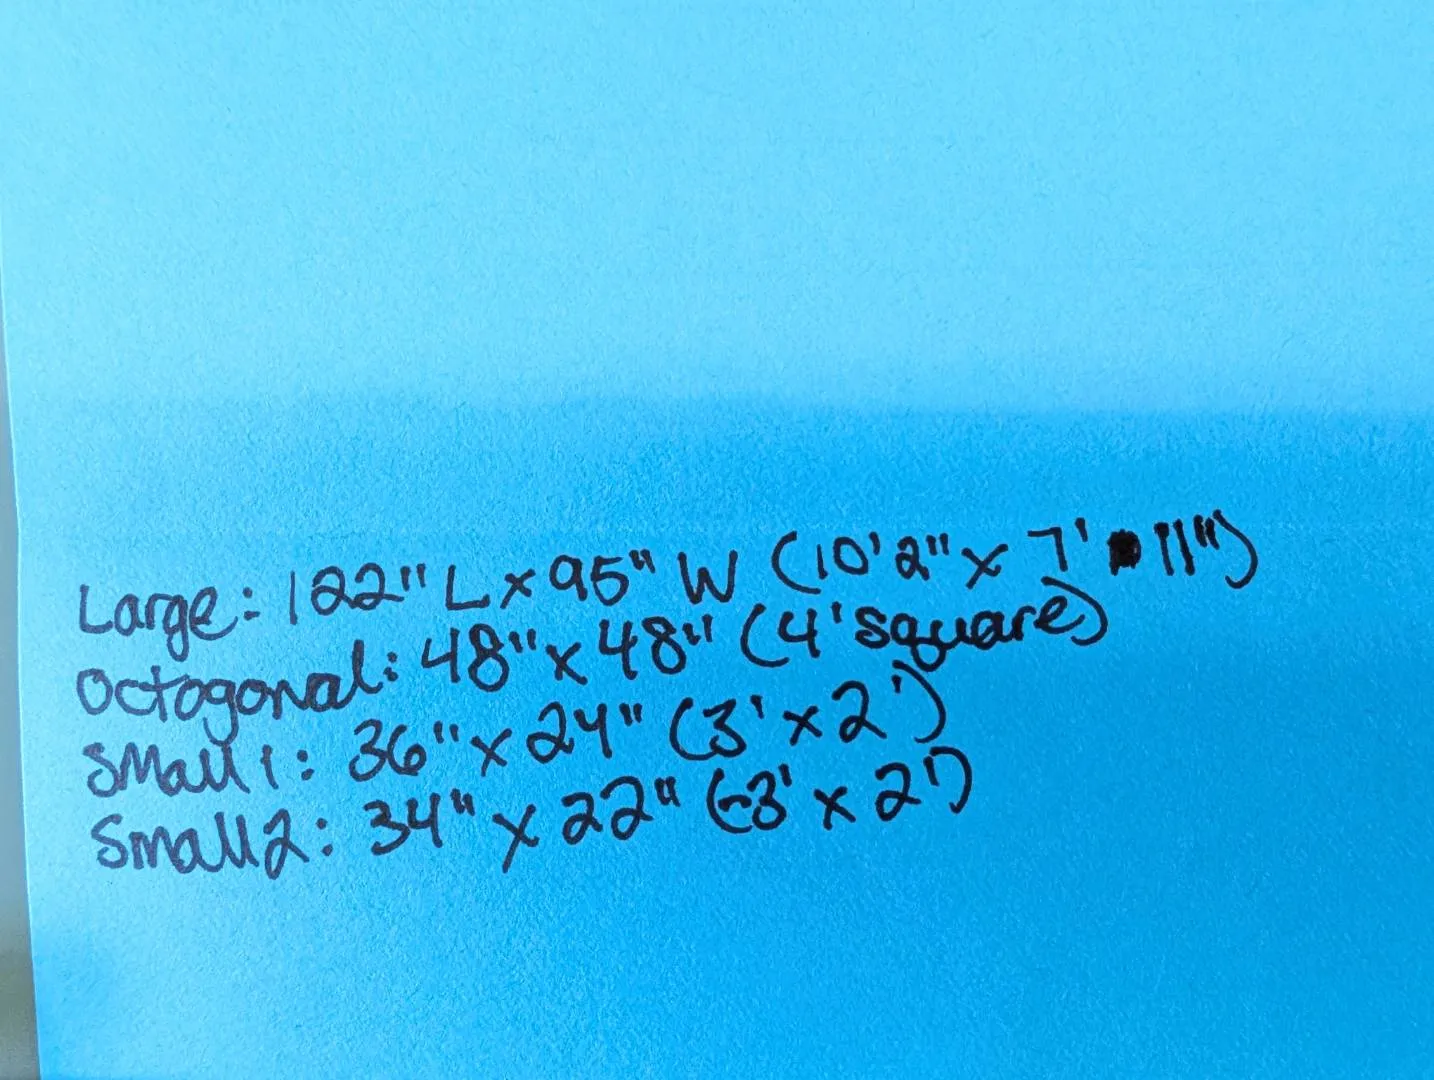 Large: 122" L x 95" W (10'2" x 7' 11")
Octagonal: 48" x 48" (4' square)
Small 1: 36" x 24" (3' x 2')
Small 2: 34" x 22" (~3' x 2')